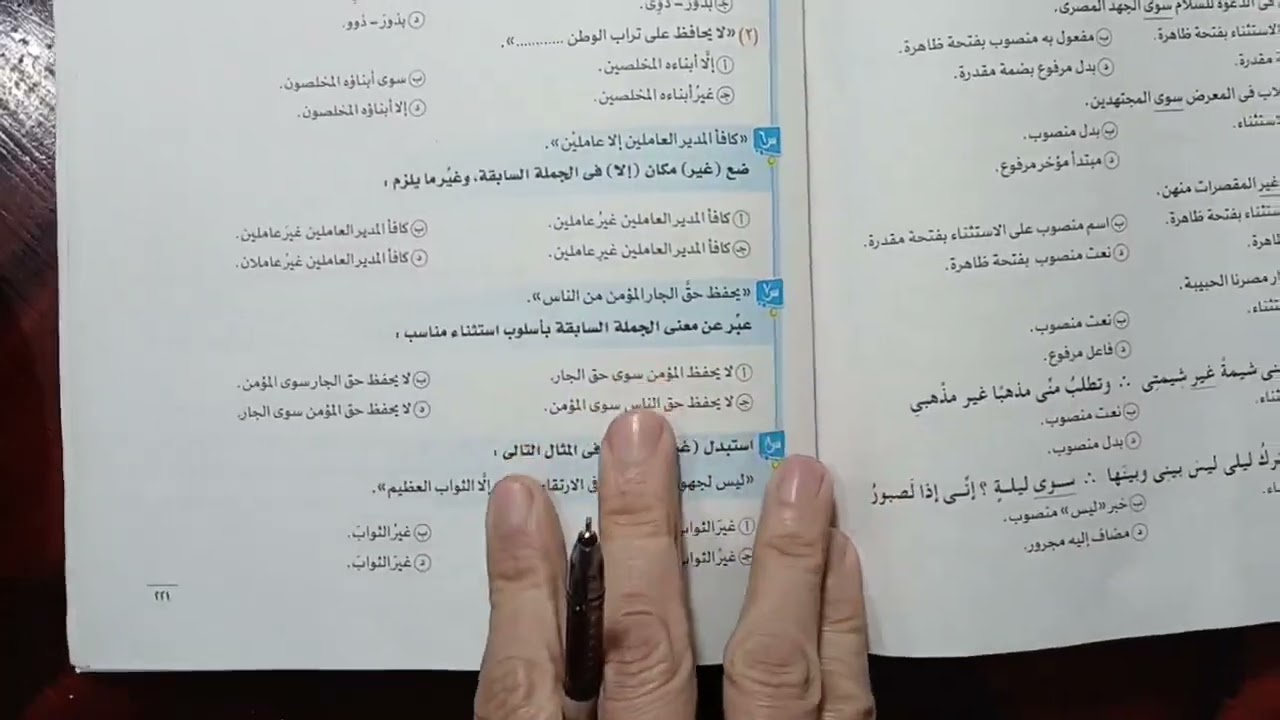 في الدعوة للسلام سوى الجهد المصرى.
الاستثناء بفتحة ظاهرة.
ب مفعول به منصوب بفتحة ظاهرة.
مقدرة.
د بدل مرفوع بضمة مقدرة.
فى المعرض سوى المجتهدين.
ب بدل منصوب.
د مبتدأ مؤخر مرفوع.
غير المقصرات منهن.
بفتحة ظاهرة.
ب اسم منصوب على الاستثناء بفتحة مقدرة.
د نعت منصوب بفتحة ظاهرة.
مصرنا الحبيبة.
ب نعت منصوب.
د فاعل مرفوع.
شيمةً غير شيمتى ∴ وتطلبُ منِّى مذهبًا غير مذهبي
ب نعت منصوب.
د بدل منصوب.
ليلى ليسَ بينى وبينَها ∴ سوى ليلةٍ ؟ إنِّـى إذًا لَصبورُ
ب خبر «ليس» منصوب.
د مضاف إليه مجرور.
ج بذور – ذوِى.
د بذورَ – ذوو.
(٢) «لا يحافظ على تراب الوطن ...........».
أ إلَّا أبناءه المخلصين.
ب سوى أبناؤه المخلصون.
ج غيرُ أبناءه المخلصين.
د إلا أبناؤه المخلصون.
س٦ «كافأ المدير العاملين إلا عاملَيْن».
ضع (غير) مكان (إلا) فى الجملة السابقة، وغيِّر ما يلزم :
أ كافأ المدير العاملين غيرُ عاملين.
ب كافأ المدير العاملين غيرَ عاملين.
ج كافأ المدير العاملين غيرِ عاملين.
د كافأ المدير العاملين غيرُ عاملان.
س٧ «يحفظ حقَّ الجار المؤمن من الناس».
عبِّر عن معنى الجملة السابقة بأسلوب استثناء مناسب :
أ لا يحفظ المؤمن سوى حق الجار.
ب لا يحفظ حق الجار سوى المؤمن.
ج لا يحفظ حق الناس سوى المؤمن.
د لا يحفظ حق المؤمن سوى الجار.
س٨ استبدل فى المثال التالى :
«ليس إلَّا الثواب العظيم».
أ غيرَ
ب غيرُ الثوابَ.
ج غيرُ
د غيرَ الثوابَ.
٢٢١